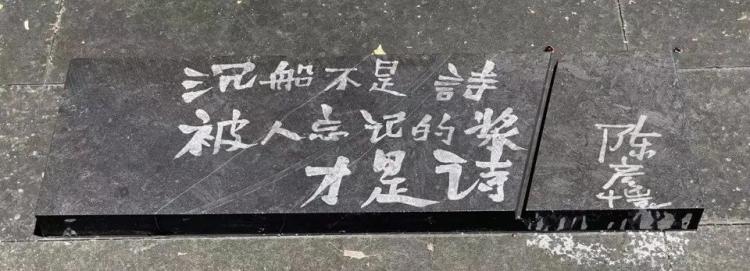 沉船不是 詩
被人忘记的桨
才是诗
陈